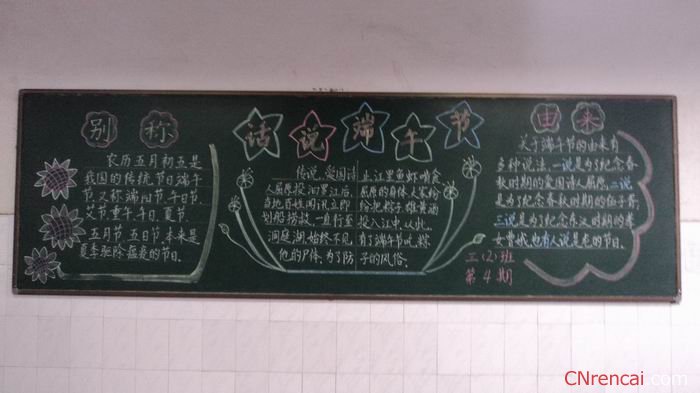 别称
农历五月初五是
我国的传统节日端午
节,又称端阳节、午日节、
艾节、重午、午日、夏节。
五月节、五日节,本来是
夏季驱除瘟疫的节日。
话说端午节
传说,爱国诗
人屈原投汨罗江后,
当地百姓闻讯立即
划船捞救,一直行至
洞庭湖,始终不见
他的尸体,为了防
止江里鱼虾啃食
屈原的身体,大家纷
纷把粽子、雄黄酒
投入江中,从此,
有了端午节吃粽
子的风俗。
由来
关于端午节的由来有
多种说法,一说是为了纪念春
秋时期的爱国诗人屈原,二说
是为了纪念春秋时期的伍子胥,
三说是为了纪念东汉时期的孝
女曹娥,也有人说是龙的节日。
三(2)班
第4期
CNrencai.com